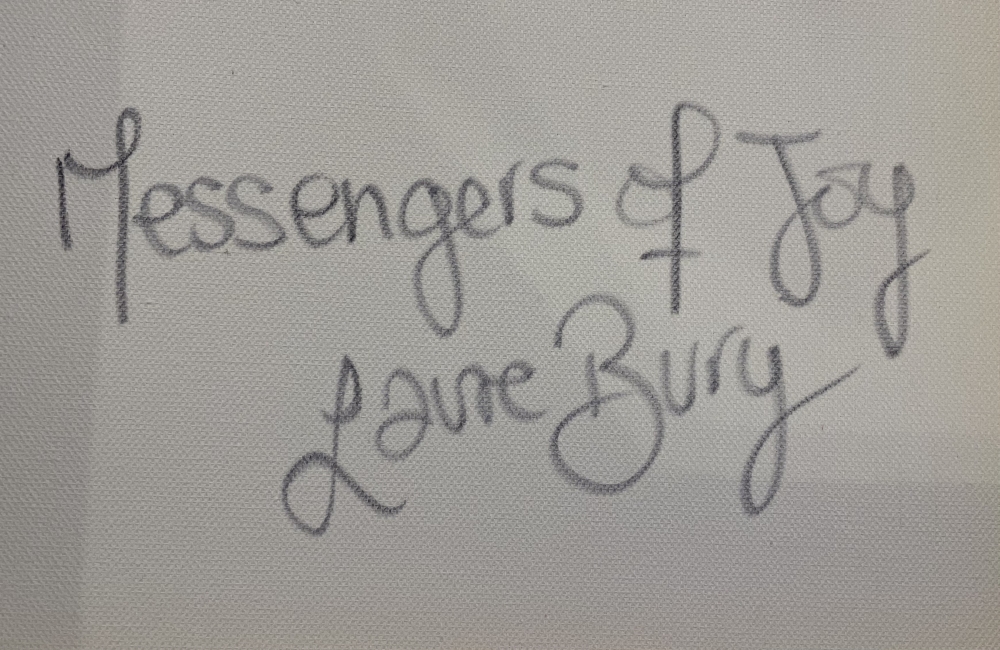 Messengers of Joy
Laure Bury